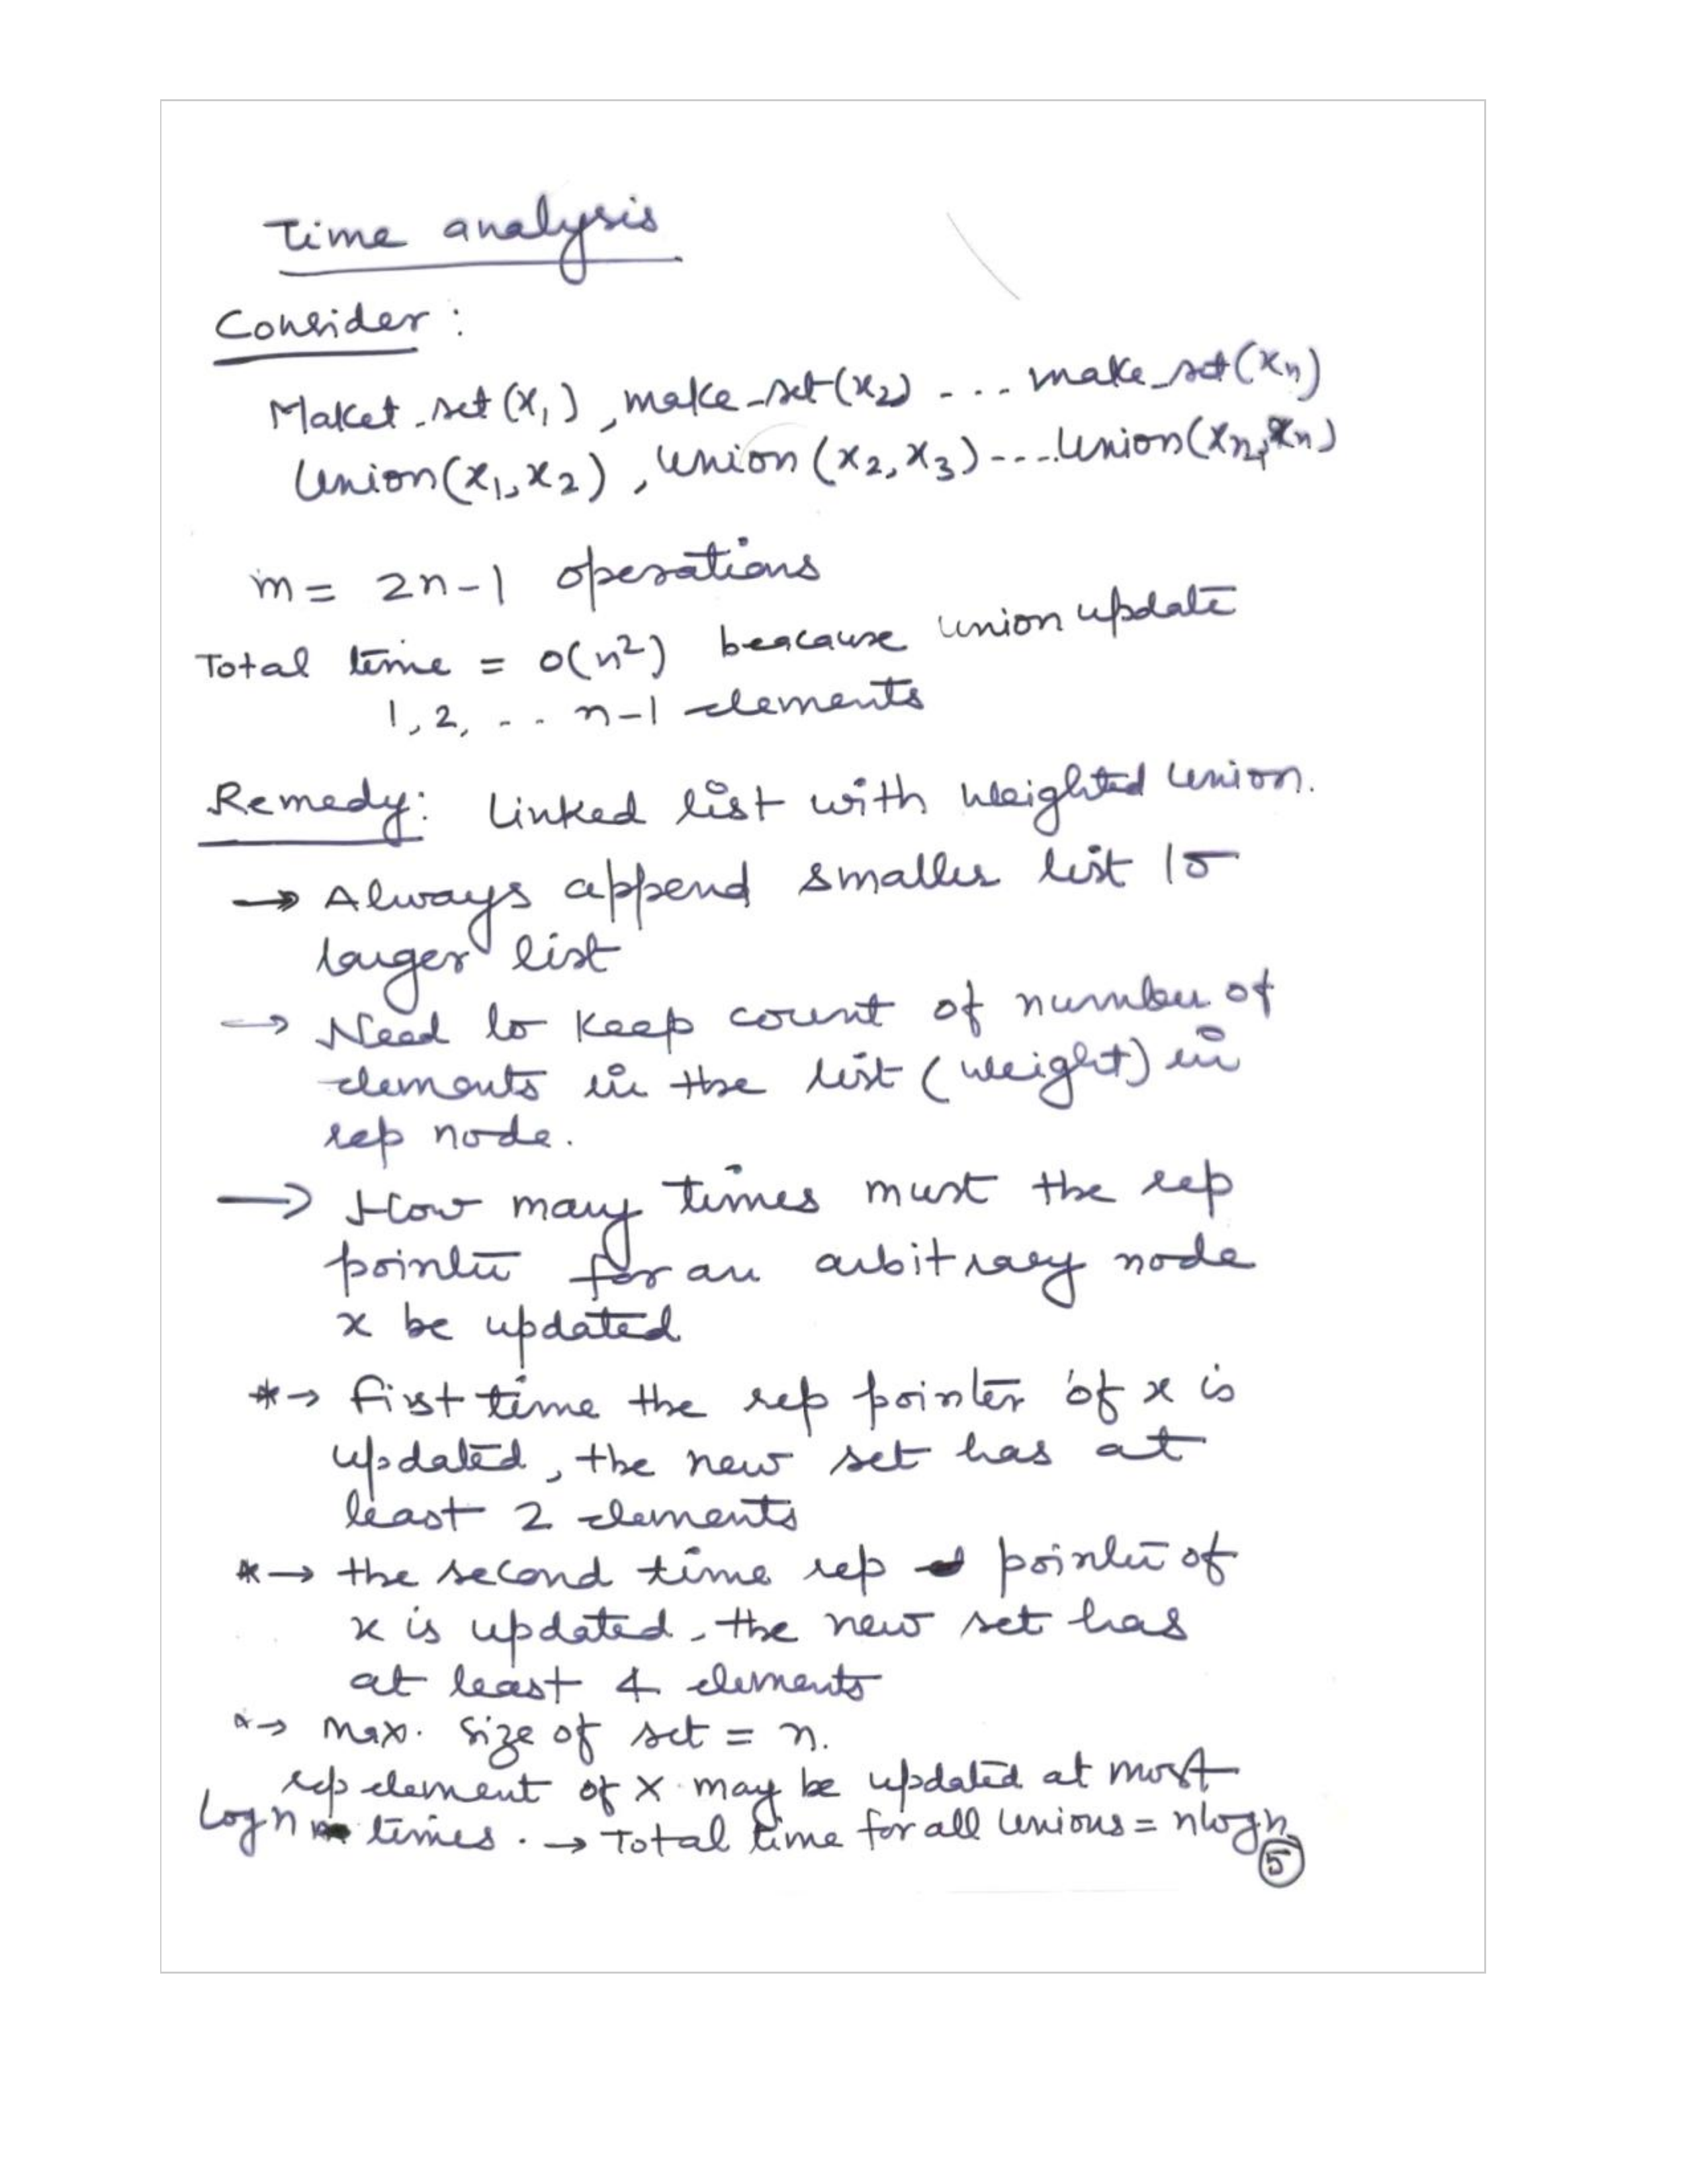 Time analysis
Consider :
Maket_set(x1), make_set(x2) ... make_set(xn)
Union(x1,x2), Union(x2,x3)----Union(xn, xn)
m = 2n-1 operations
Total time = o(n²) beacause union update
1, 2, .. n-1 elements
Remedy: Linked list with weighted Union.
→ Always append smaller list to
larger list
→ Need to keep count of number of
elements in the list (weight) in
rep node.
→ How many times must the rep
pointer for an arbitrary node
x be updated
*→ first time the rep pointer of x is
updated, the new set has at
least 2 elements
*→ the second time rep pointer of
x is updated, the new set has
at least 4 elements
*→ max. size of set = n.
rep element of x may be updated at most
Log n times. → Total time for all Unions = nlogn
5